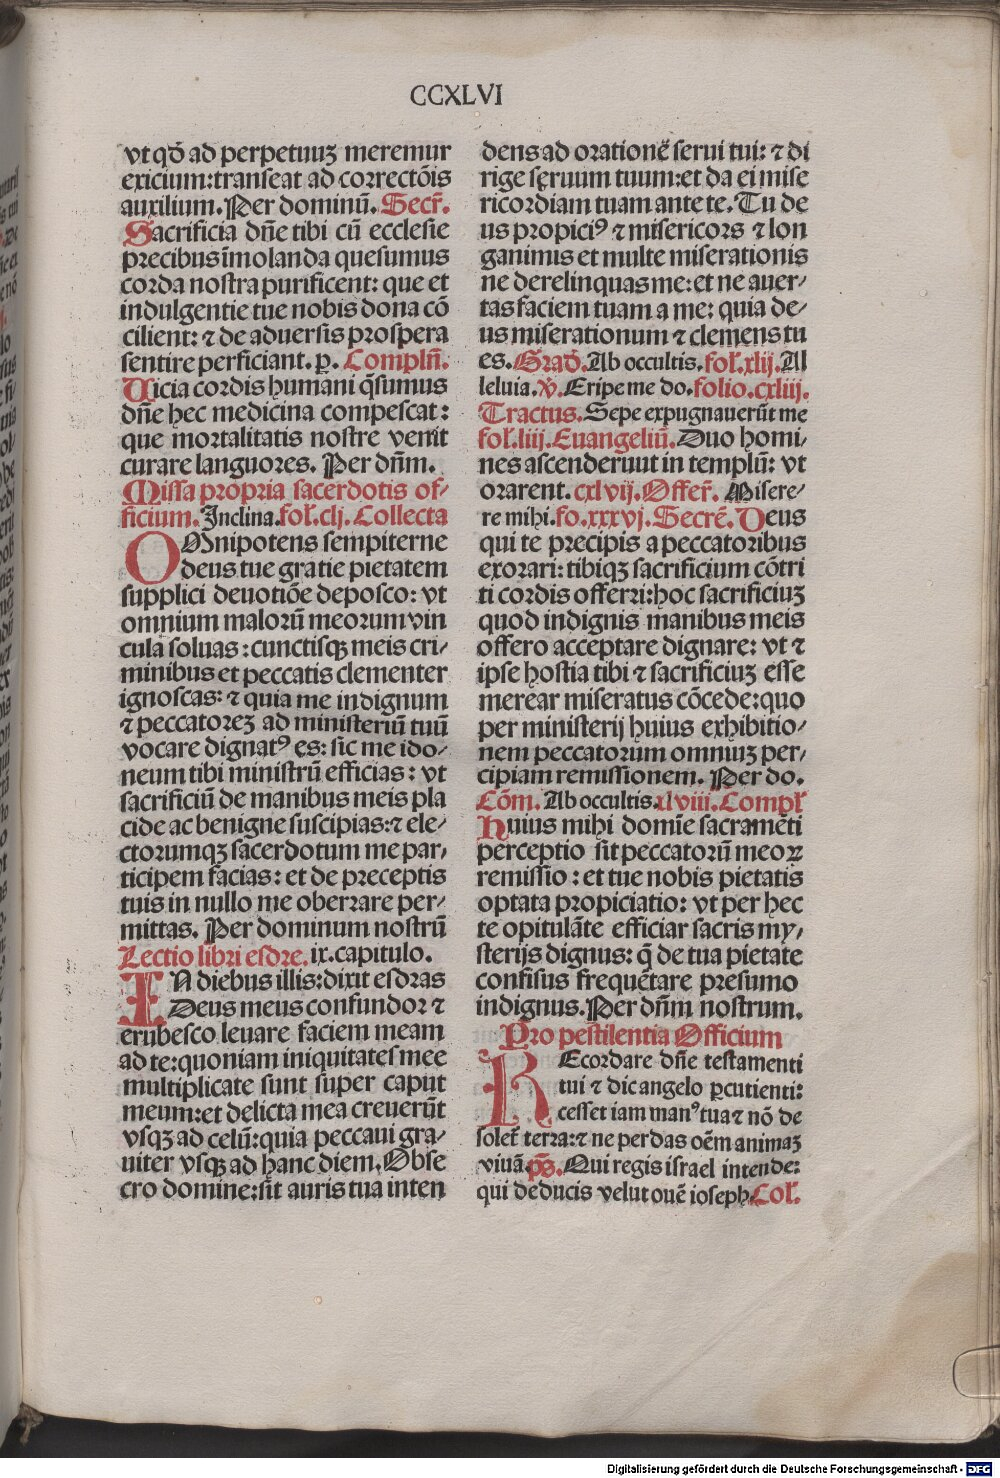 CCXLVI
vt qđ ad perpetuuꝫ meremur
exicium:transeat ad correctõis
auxilium. Per dominũ. Secr̃.
Sacrificia dñe tibi cũ ecclesie
precibus ĩmolanda quesumus
corda nostra purificent: que et
indulgentie tue nobis dona cõ
cilient: ⁊ de aduersis prospera
sentire perficiant. ꝑ. Complñ.
Uicia cordis humani q̃sumus
dñe hec medicina compescat:
que mortalitatis nostre venit
curare languores. Per dñm.
Missa propria sacerdotis of⸗
ficium. Inclina. fol̃. clj. Collecta
OMnipotens sempiterne
deus tue gratie pietatem
supplici deuotiõe deposco: vt
omnium malorũ meorum vin
cula soluas: cunctisqꝫ meis cri⸗
minibus et peccatis clementer
ignoscas: ⁊ quia me indignum
⁊ peccatoreꝫ ad ministeriũ tuũ
vocare dignatꝰ es: sic me ido⸗
neum tibi ministrũ efficias: vt
sacrificiũ de manibus meis pla
cide ac benigne suscipias: ⁊ ele⸗
ctorumqꝫ sacerdotum me par⸗
ticipem facias: et de preceptis
tuis in nullo me oberrare per⸗
mittas. Per dominum nostrũ
Lectio libri esdre. ix. capitulo.
IN diebus illis: dixit esdras
Deus meus confundor ⁊
erubesco leuare faciem meam
ad te: quoniam iniquitates mee
multiplicate sunt super caput
meum: et delicta mea creuerũt
vsqꝫ ad celũ: quia peccaui gra⸗
uiter vsqꝫ ad hanc diem. Obse
cro domine: sit auris tua inten
dens ad orationẽ serui tui: ⁊ di
rige seruum tuum: et da ei mise
ricordiam tuam ante te. Tu de
us propiciꝰ ⁊ misericors ⁊ lon
ganimis et multe miserationis
ne derelinquas me: et ne auer⸗
tas faciem tuam a me: quia de⸗
us miserationum ⁊ clemens tu
es. Grad̃. Ab occultis. fol̃. xlij. Al
leluia. ℣. Eripe me do. folio. cxliij.
Tractus. Sepe expugnauerũt me
fol̃. liij. Euangeliũ. Duo homi⸗
nes ascenderunt in templũ: vt
orarent. cxlvij. Offer̃. Misere⸗
re mihi. fo. xxxvj. Secrẽ. Deus
qui te precipis a peccatoribus
exorari: tibiqꝫ sacrificium cõtri
ti cordis offerri: hoc sacrificiuꝫ
quod indignis manibus meis
offero acceptare dignare: vt ⁊
ipse hostia tibi ⁊ sacrificiuꝫ esse
merear miseratus cõcede: quo
per ministerij huius exhibitio⸗
nem peccatorum omniuꝫ per⸗
cipiam remissionem. Per do.
Cõm. Ab occultis. xlviii. Compl̃
Huius mihi domĩe sacramẽti
perceptio sit peccatorũ meoꝝ
remissio: et tue nobis pietatis
optata propiciatio: vt per hec
te opitulãte efficiar sacris my⸗
sterijs dignus: q̃ de tua pietate
confisus frequẽtare presumo
indignus. Per dñm nostrum.
Pro pestilentia Officium
REcordare dñe testamenti
tui ⁊ dic angelo ꝑcutienti:
cesset iam manꝰ tua ⁊ nõ de
solet̃ terra: ⁊ ne perdas oẽm animaꝫ
viuã. p̃s. Qui regis israel intende:
qui deducis velut ouẽ ioseph. Col̃.
Digitalisierung gefördert durch die Deutsche Forschungsgemeinschaft - DFG